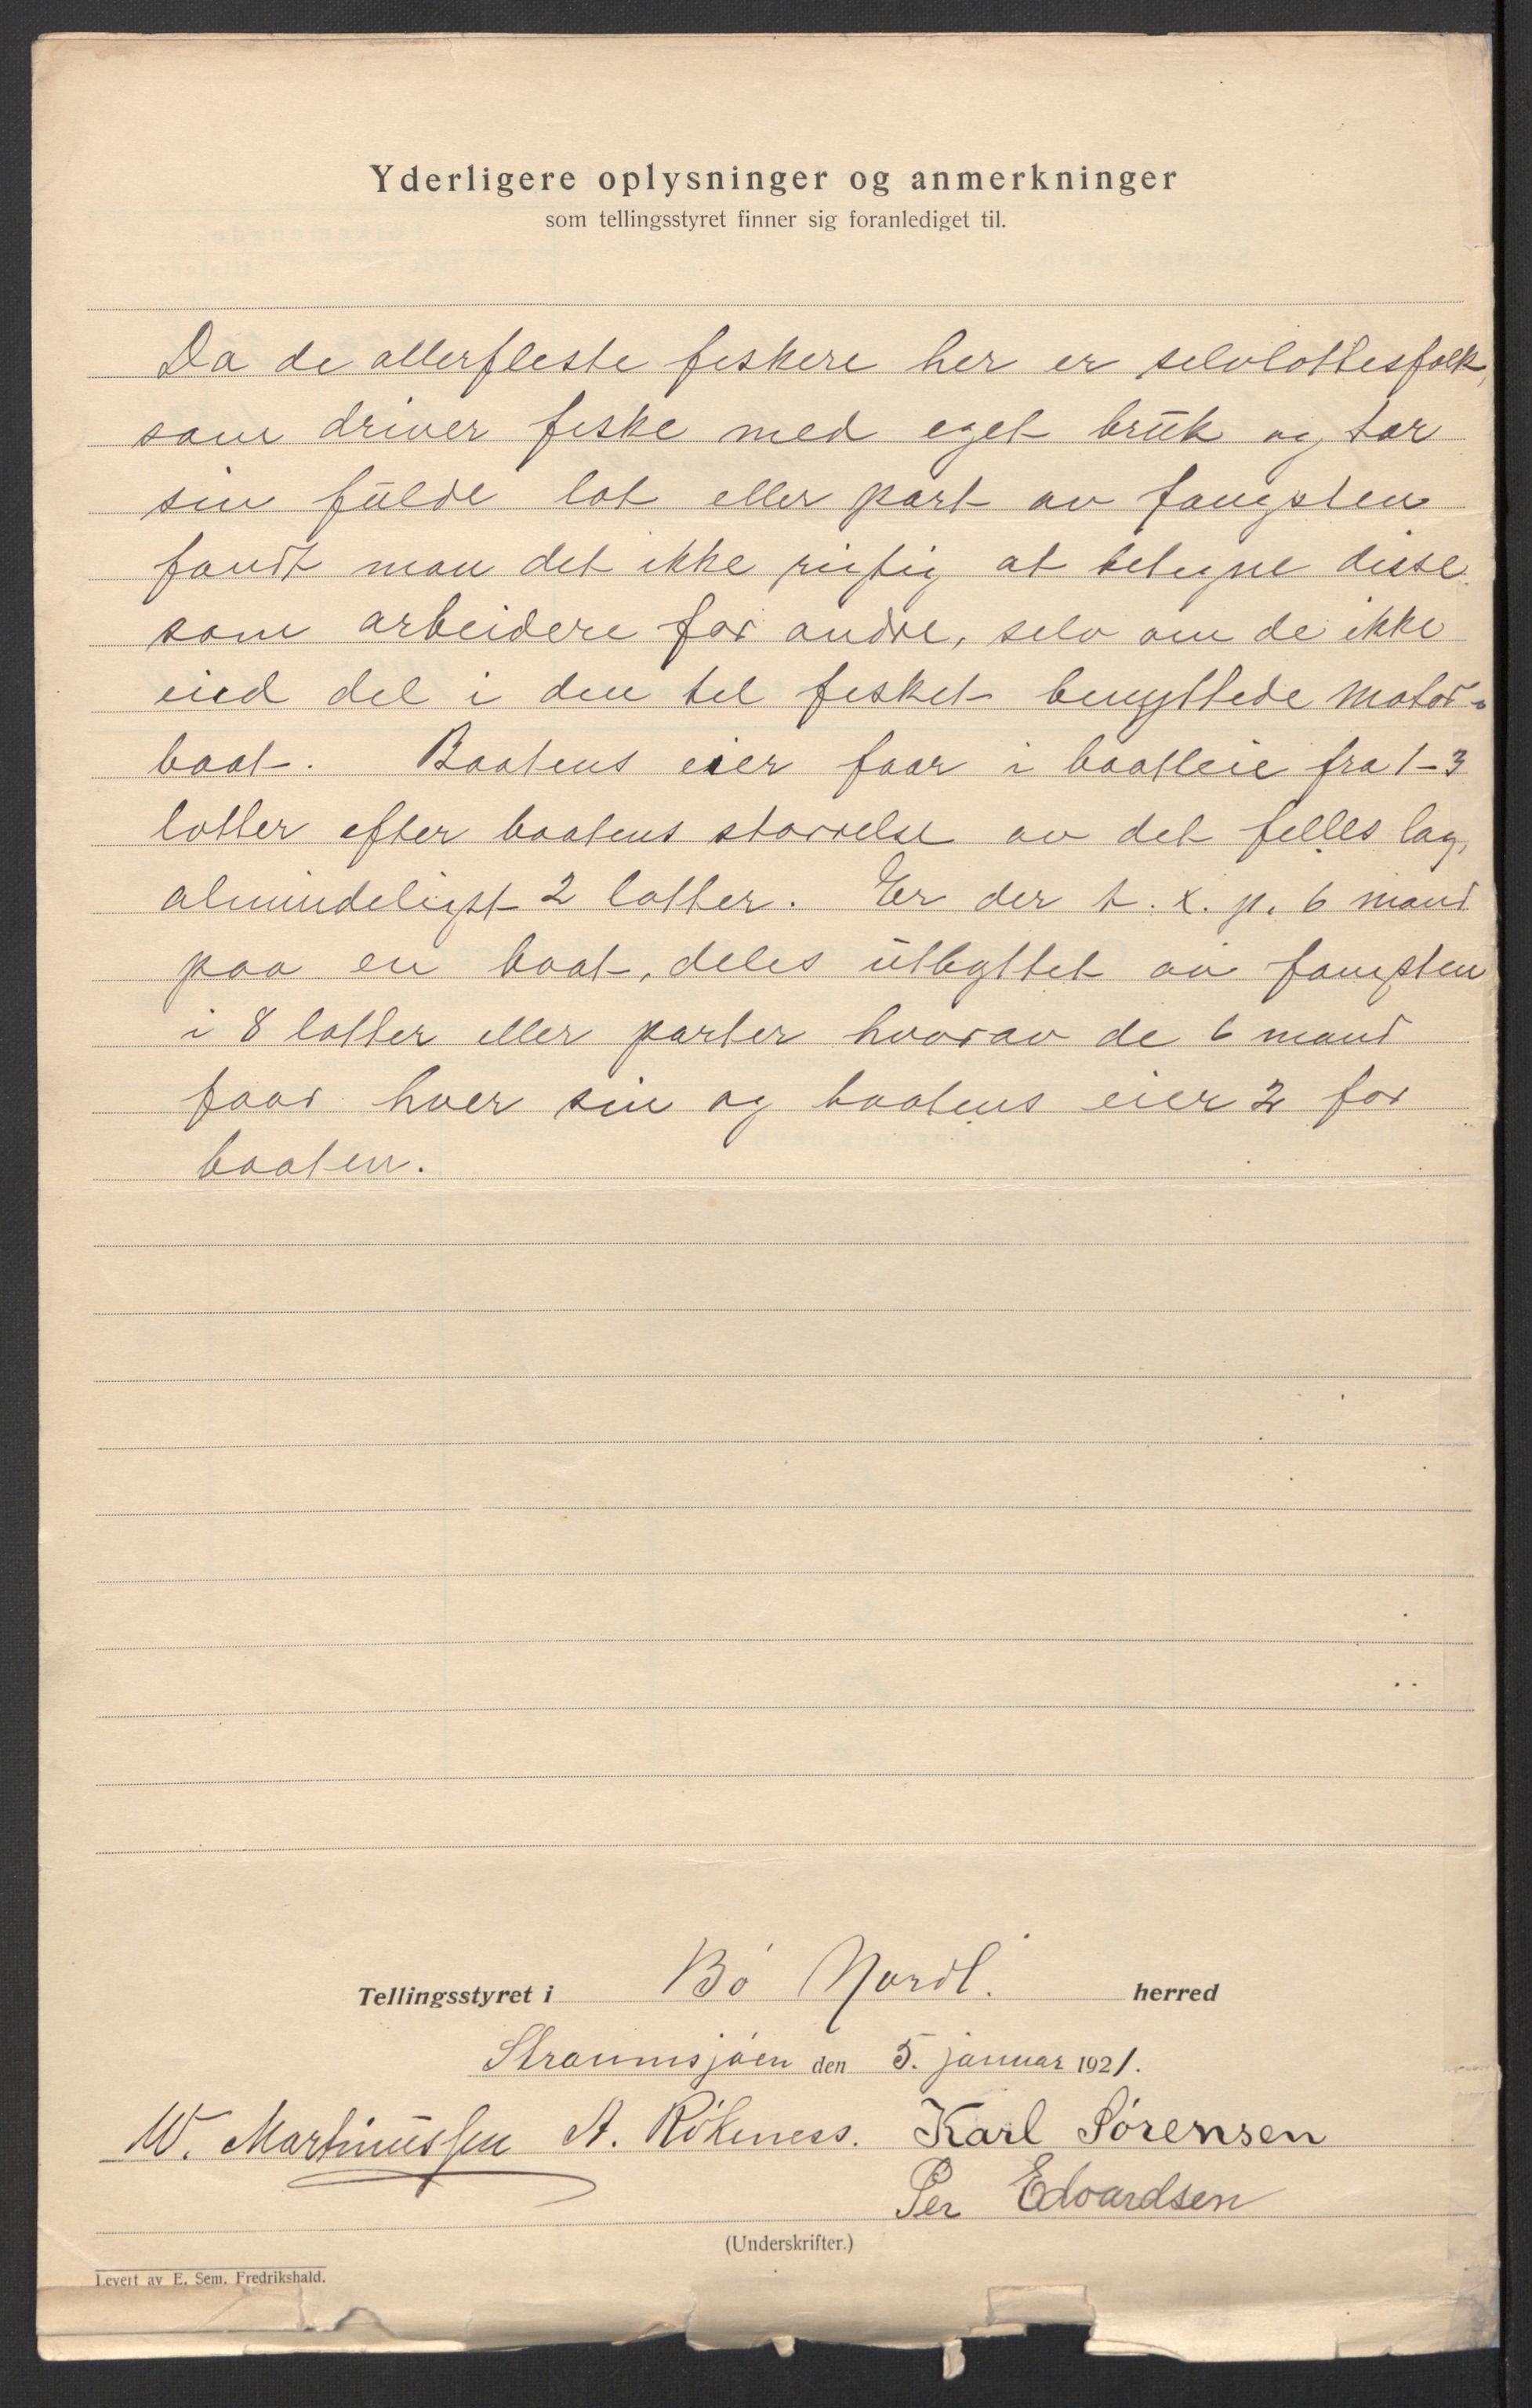 Yderligere oplysninger og anmerkninger
som tellingsstyret finner sig foranlediget til.
Da de allerfleste fiskere her er selvlottesfolk,
som driver fiske med eget bruk og tar
sin fulde lot eller part av fangsten
fandt man det ikke rigtig at betegne disse
som arbeidere for andre, selv om de ikke
eied del i den til fisket benyttede motor-
baat. Baatens eier faar i baatleie fra 1-3
lotter efter baatens størrelse av det felles lag,
almindeligst 2 lotter. Er der t. x. p. 6 mand
paa en baat, deles utbyttet av fangsten
i 8 lotter eller parter hvorav de 6 mand
faar hver sin og baatens eier 2 for
baaten.
Tellingsstyret i Bø Nordl. herred
Straumsjøen den 5. januar 1921.
W. Martinussen A. Røkness. Karl Sørensen
Per Edvardsen
(Underskrifter.)
Levert av E. Sem, Fredrikshald.